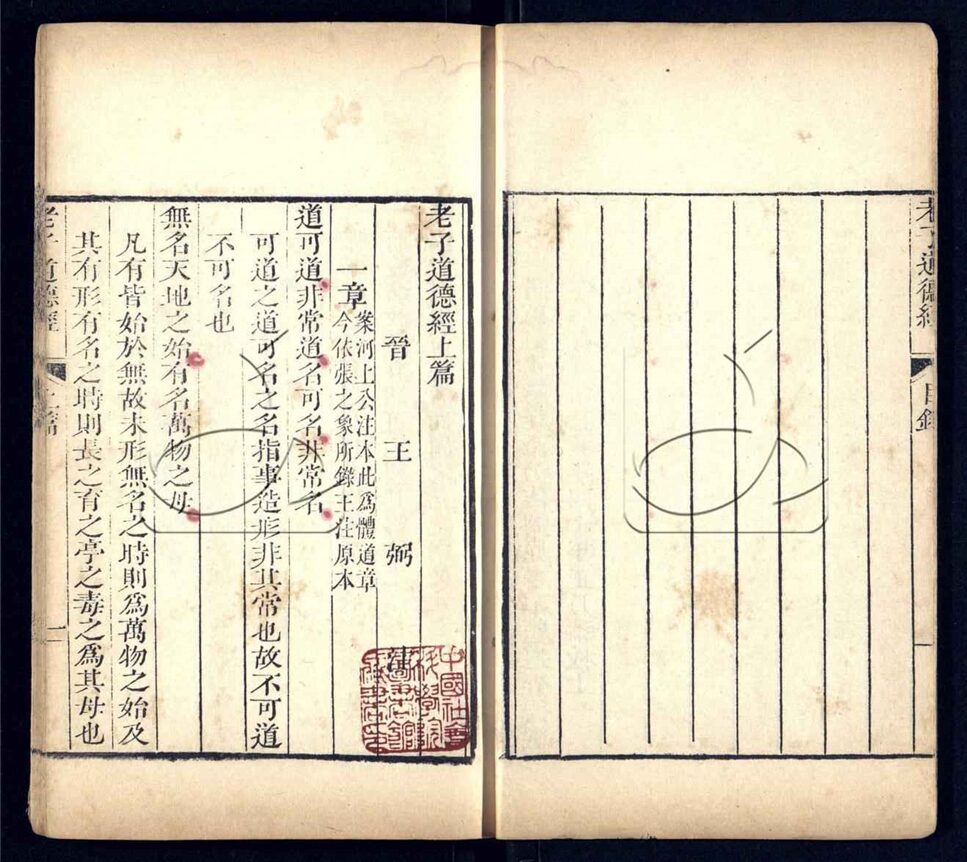 老子道德經
目錄
一
老子道德經上篇
晉王弼注
一章
案河上公注本此爲體道章
今依張之象所錄王注原本
道可道非常道名可名非常名
可道之道可名之名指事造形非其常也故不可道
不可名也
無名天地之始有名萬物之母
凡有皆始於無故未形無名之時則爲萬物之始及
其有形有名之時則長之育之亭之毒之爲其母也
老子道德經
上篇
中國社會
科學院